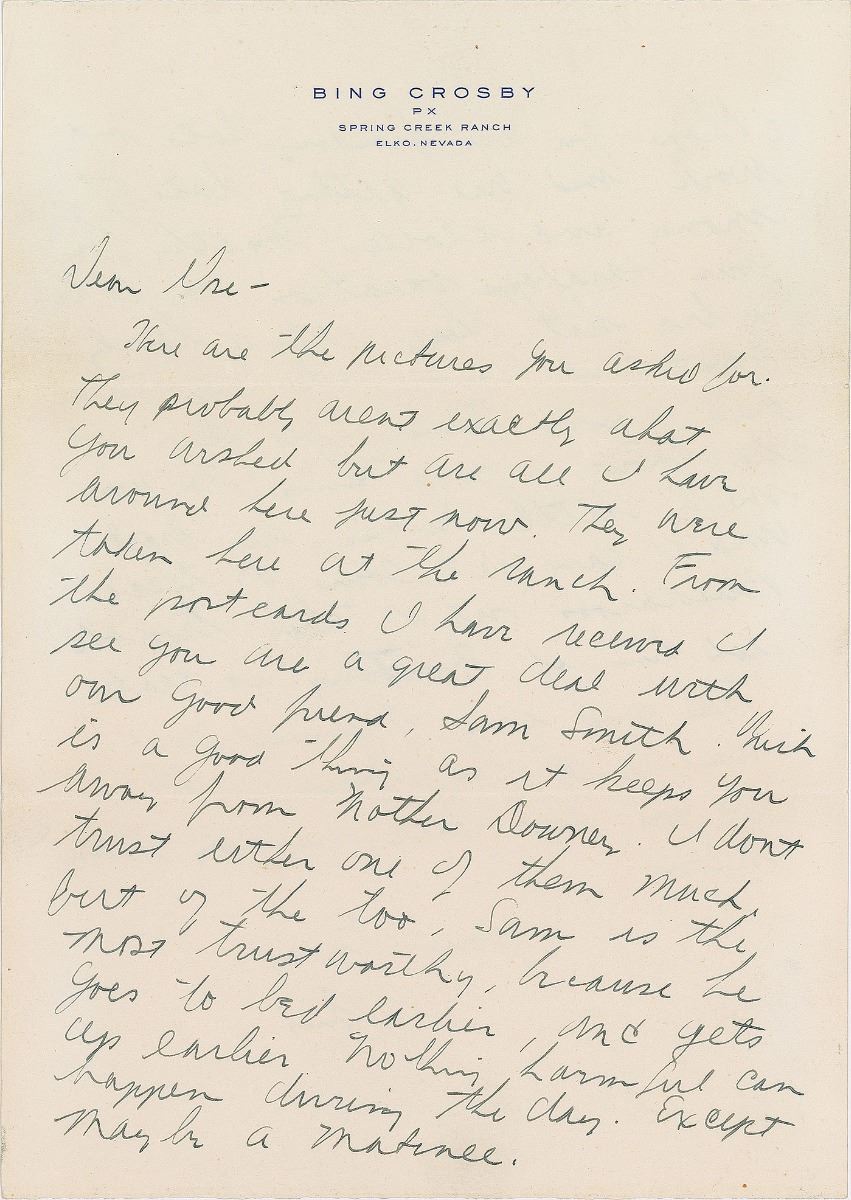 BING CROSBY
PX
SPRING CREEK RANCH
ELKO, NEVADA
Dear
Here are the pictures you asked for.
They probably arent exactly what
you wished but are all I have
around here just now. They were
taken here at the ranch. From
the postcards I have received I
see you are a great deal with
our good friend, Sam Smith. Which
is a good thing as it keeps you
away from Mother Downey. I dont
trust either one of them much,
but of the too, Sam is the
most trustworthy, because he
goes to bed earlier, and gets
up earlier. Nothing harmful can
happen during the day. Except
maybe a matinee.